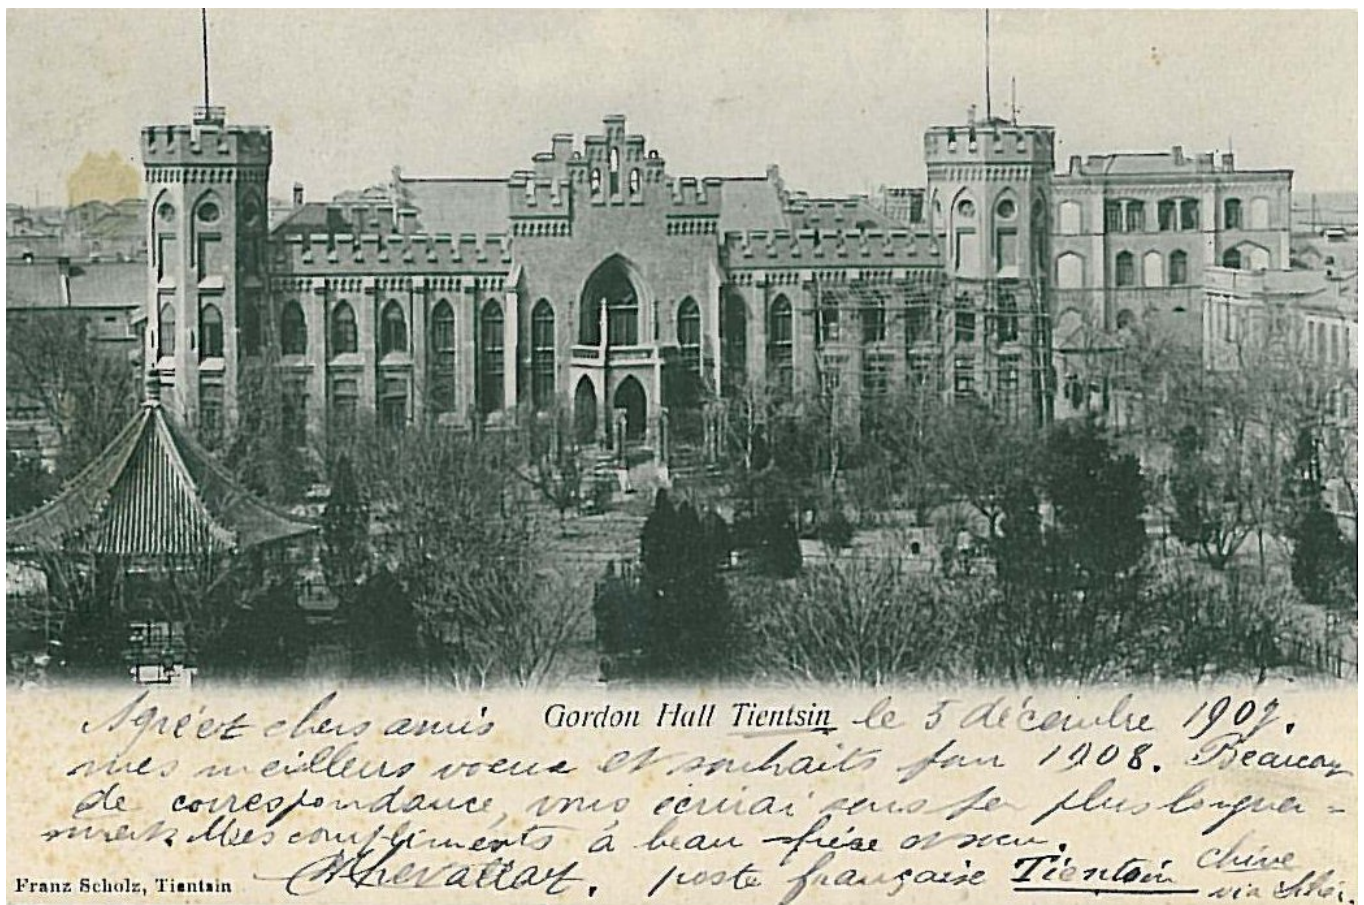 Agréez chers amis Gordon Hall Tientsin le 5 décembre 1907.
mes meilleurs voeux et souhaits pour 1908. Beaucoup
de correspondance, vous écrirai sous peu plus longue-
ment. Mes compliments à beau frère et soeur.
Franz Scholz, Tientsin poste française Tientsin Chine
via